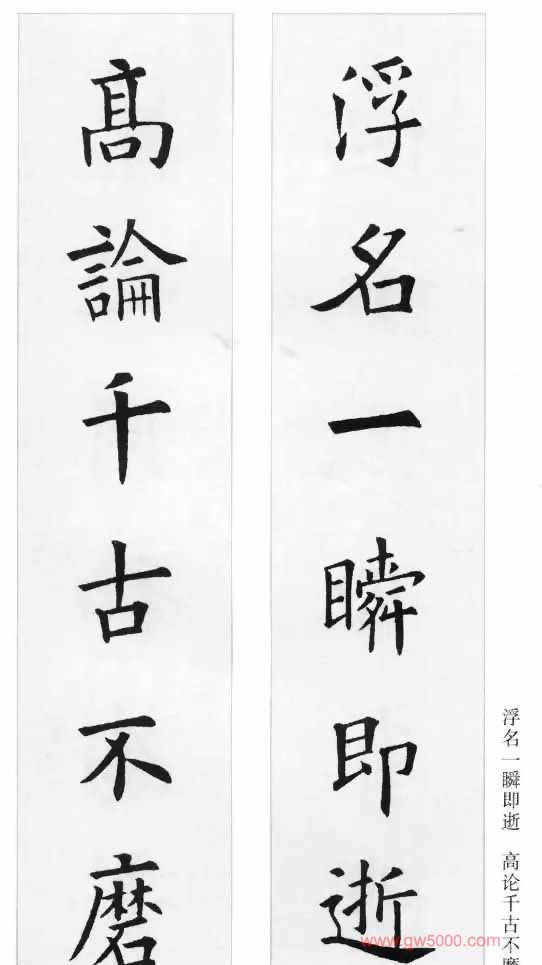 浮名一瞬即逝
高論千古不磨
浮名一瞬即逝 高论千古不磨
www.gw5000.com